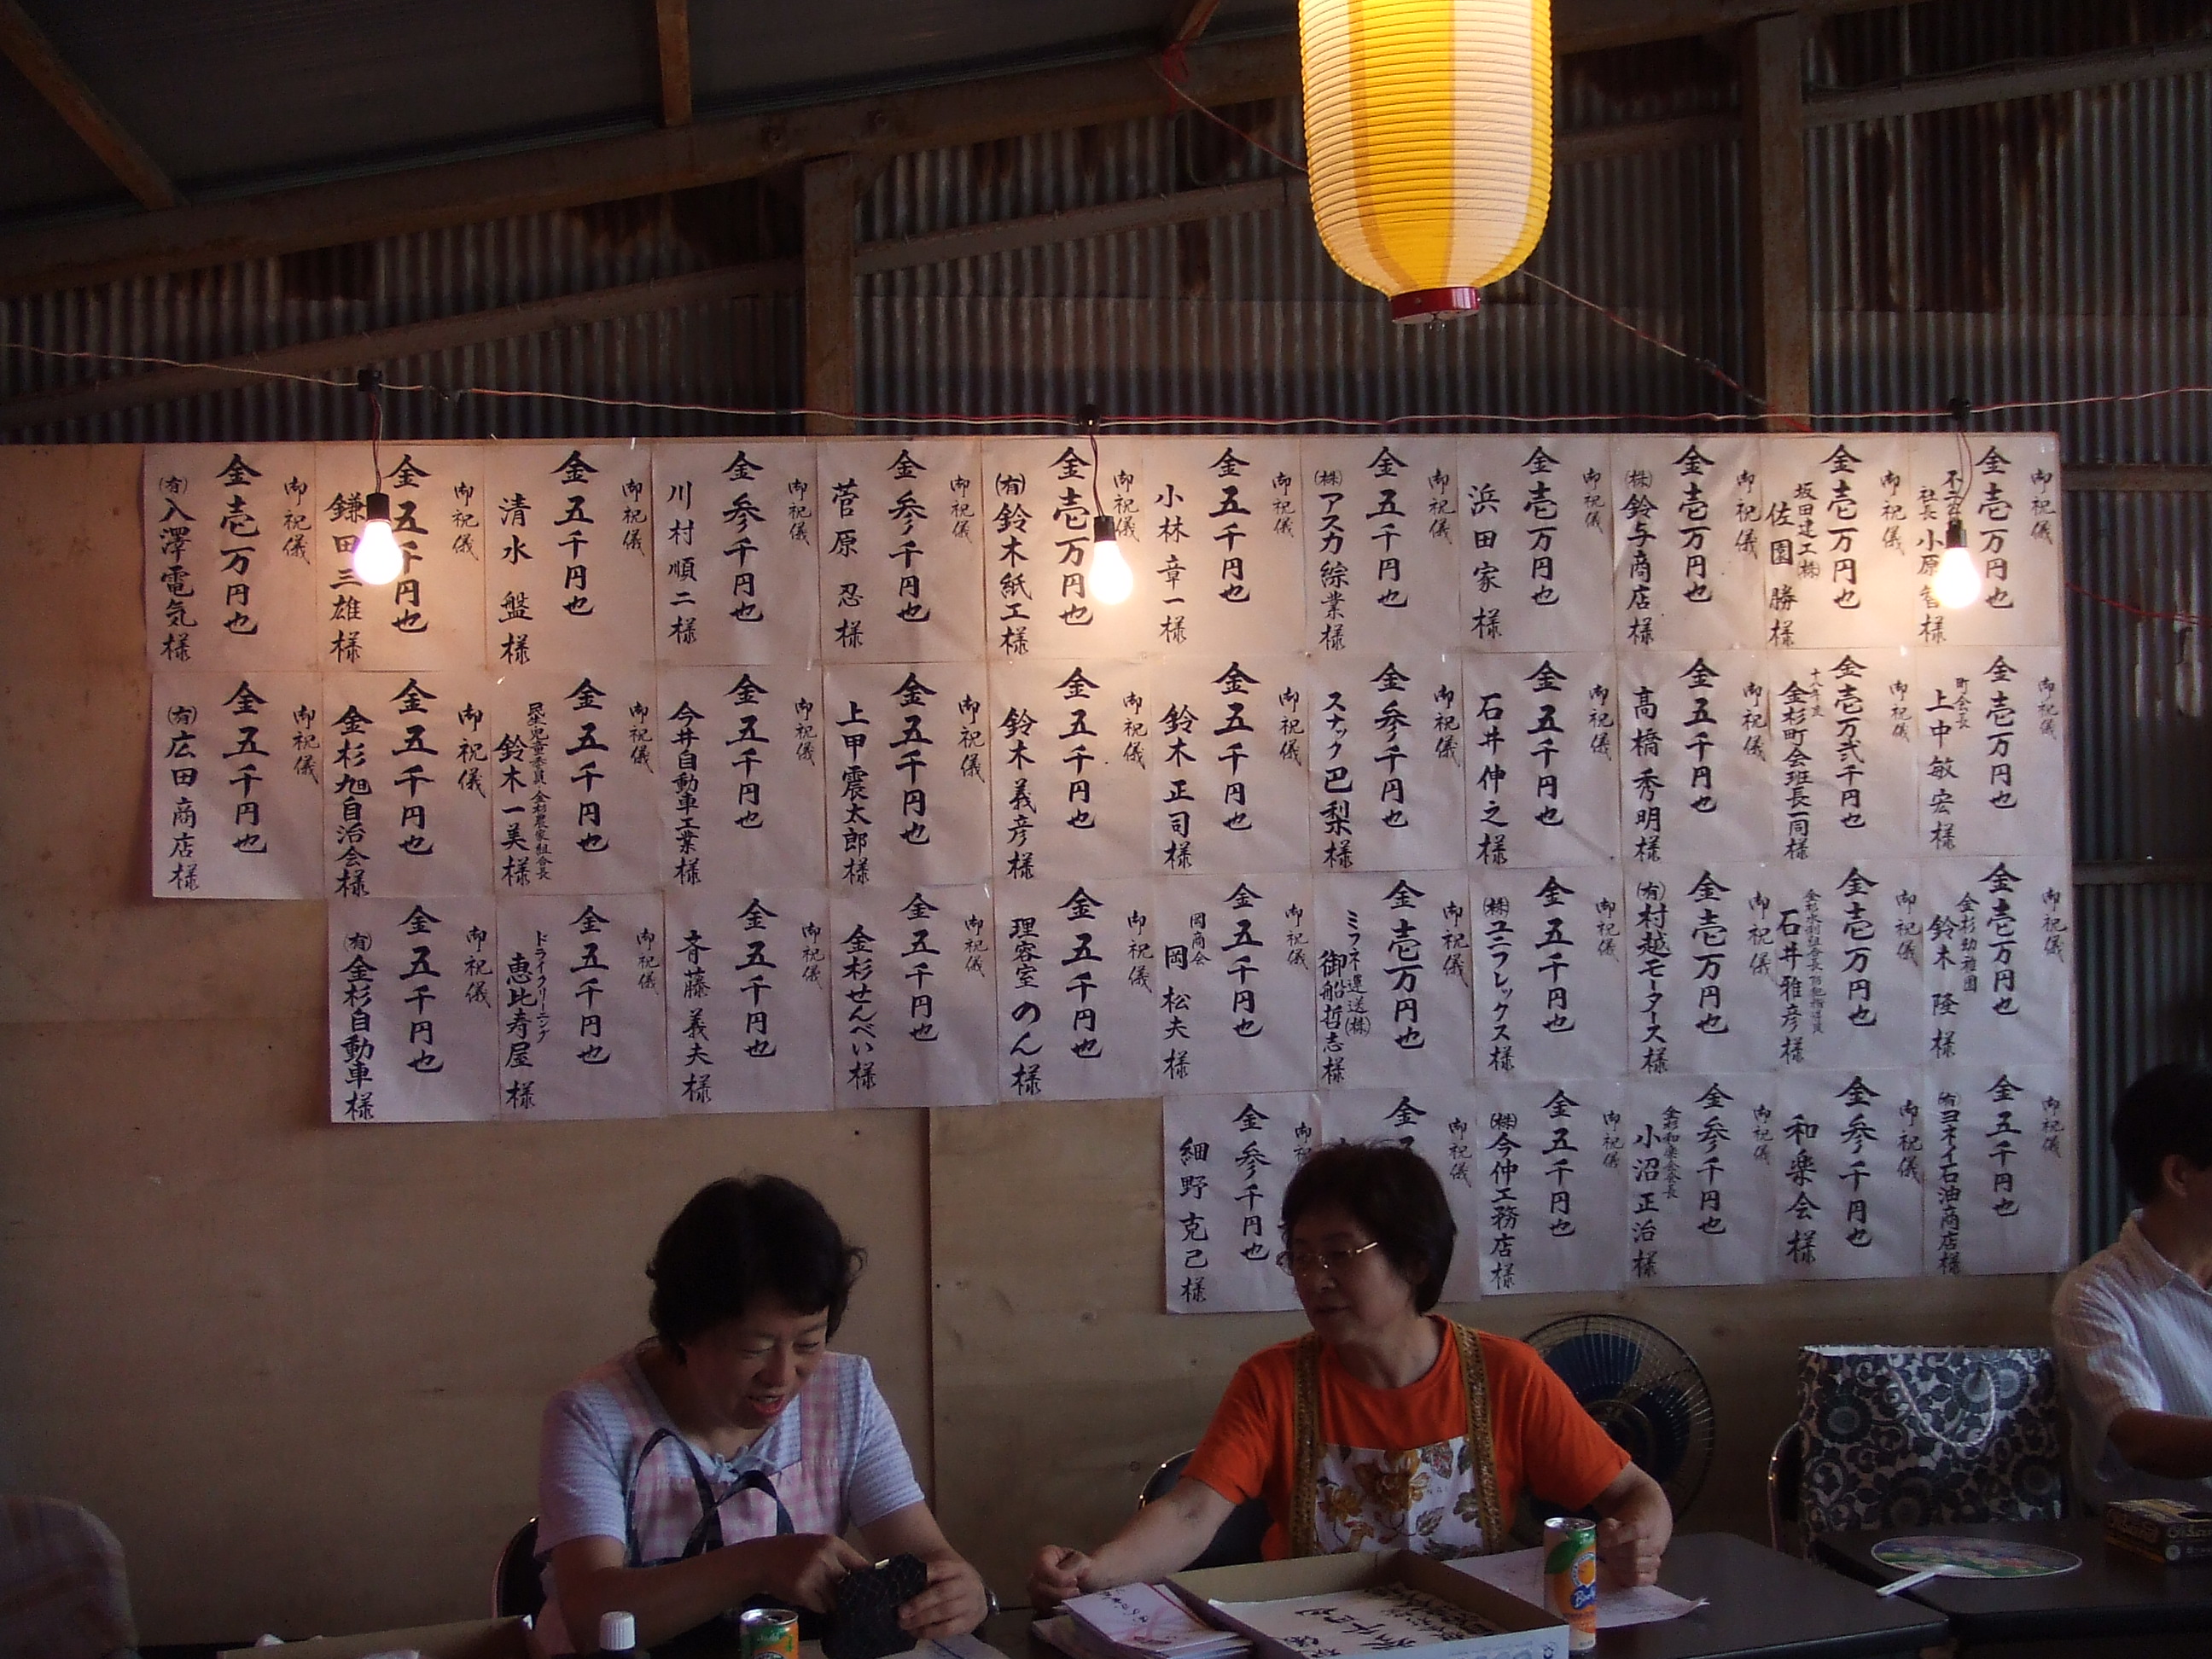 御祝儀
金壱万円也
社長 小原智様
御祝儀
金壱万円也
坂田建工㈱
佐園勝様
御祝儀
金壱万円也
㈱鈴与商店様
御祝儀
金壱万円也
浜田家様
御祝儀
金五千円也
㈱アスカ綜業様
御祝儀
金五千円也
小林章一様
御祝儀
金壱万円也
㈲鈴木紙工様
御祝儀
金参千円也
菅原忍様
御祝儀
金参千円也
川村順二様
御祝儀
金五千円也
清水盤様
御祝儀
金五千円也
鎌田三雄様
御祝儀
金壱万円也
㈲入澤電気様
御祝儀
金壱万円也
町会長
上中敏宏様
御祝儀
金壱万弐千円也
十八年度
金杉町会班長一同様
御祝儀
金五千円也
髙橋秀明様
御祝儀
金五千円也
石井伸之様
御祝儀
金参千円也
スナック巴梨様
御祝儀
金五千円也
鈴木正司様
御祝儀
金五千円也
鈴木義彦様
御祝儀
金五千円也
上甲震太郎様
御祝儀
金五千円也
今井自動車工業様
御祝儀
金五千円也
民生児童委員・金杉農家組合長
鈴木一美様
御祝儀
金五千円也
金杉旭自治会様
御祝儀
金五千円也
㈲広田商店様
御祝儀
金壱万円也
金杉幼稚園
鈴木隆様
御祝儀
金壱万円也
金杉水利組合長防犯指導員
石井雅彦様
御祝儀
金壱万円也
㈲村越モータース様
御祝儀
金五千円也
㈱ユニフレックス様
御祝儀
金壱万円也
ミフネ運送㈱
御船哲志様
御祝儀
金五千円也
岡商会
岡松夫様
御祝儀
金五千円也
理容室のん様
御祝儀
金五千円也
金杉せんべい様
御祝儀
金五千円也
斉藤義夫様
御祝儀
金五千円也
ドライクリーニング
恵比寿屋様
御祝儀
金五千円也
㈲金杉自動車様
御祝儀
金五千円也
㈲ヨネイ石油商店様
御祝儀
金参千円也
和楽会様
御祝儀
金参千円也
金杉和楽会会長
小沼正治様
御祝儀
金五千円也
㈱今仲工務店様
御祝儀
金五
御祝
金参千円也
細野克己様